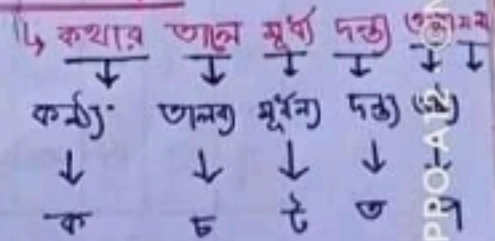 ↳ কথার তালে মূর্ধ্য দন্ত্য ওষ্ঠ্য
কন্ঠ্য তালব্য মূর্ধন্য দন্ত্য ওষ্ঠ্য
ক চ ট ত প